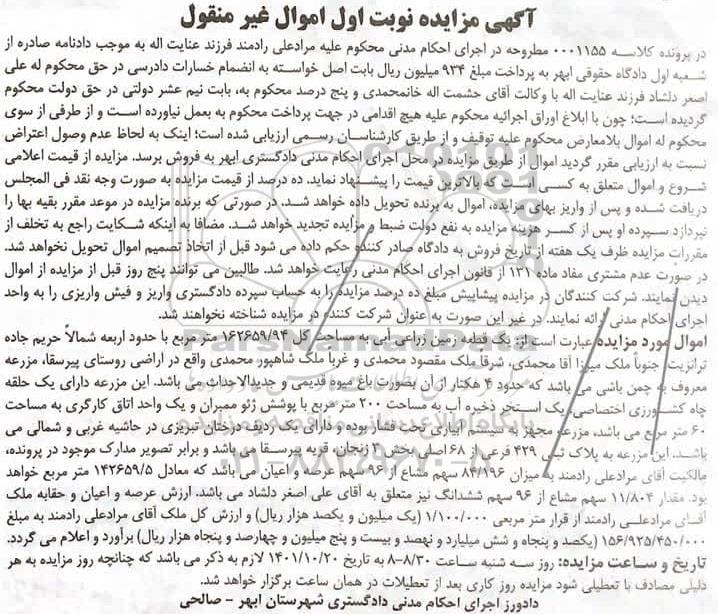 آگهی مزایده نوبت اول اموال غیر منقول
در پرونده کلاسه ۰۰۰۱۱۵۵ مطروحه در اجرای احکام مدنی محکوم علیه مرادعلی رادمند فرزند عنایت اله به موجب دادنامه صادره از
شعبه اول دادگاه حقوقی ابهر به پرداخت مبلغ ۹۳۴ میلیون ریال بابت اصل خواسته به انضمام خسارات دادرسی در حق محکوم له علی
اصغر دلشاد فرزند عنایت اله با وکالت آقای حشمت اله خانمحمدی و پنج درصد محکوم به، بابت نیم عشر دولتی در حق دولت محکوم
گردیده است؛ چون با ابلاغ اوراق اجرائیه محکوم علیه هیچ اقدامی در جهت پرداخت محکوم به بعمل نیاورده است و از طرفی از سوی
محکوم له اموال بلامعارض محکوم علیه توقیف و از طریق کارشناسان رسمی ارزیابی شده است؛ اینک به لحاظ عدم وصول اعتراض
نسبت به ارزیابی مقرر گردید اموال از طریق مزایده در محل اجرای احکام مدنی دادگستری ابهر به فروش برسد. مزایده از قیمت اعلامی
شروع و اموال متعلق به کسی است که بالاترین قیمت را پیشنهاد نماید. ده درصد از قیمت مزایده به صورت وجه نقد فی المجلس
دریافت شده و پس از واریز بهای مزایده، اموال به برنده تحویل داده خواهد شد. در صورتی که برنده مزایده در موعد مقرر بقیه بها را
نپردازد سپرده او پس از کسر هزینه مزایده به نفع دولت ضبط و مزایده تجدید خواهد شد. مضافا به اینکه شکایت راجع به تخلف از
مقررات مزایده ظرف یک هفته از تاریخ فروش به دادگاه صادر کننده حکم داده می شود قبل از اتخاذ تصمیم اموال تحویل نخواهد شد.
در صورت عدم مشتری مفاد ماده ۱۳۱ از قانون اجرای احکام مدنی رعایت خواهد شد. طالبین می توانند پنج روز قبل از مزایده از اموال
دیدن نمایند. شرکت کنندگان در مزایده پیشاپیش مبلغ ده درصد مزایده را به حساب سپرده دادگستری واریز و فیش واریزی را به واحد
اجرای احکام مدنی ارائه نمایند. در غیر این صورت به عنوان شرکت کننده در مزایده شناخته نخواهند شد.
اموال مورد مزایده عبارت است از: یک قطعه زمین زراعی آبی به مساحت کل ۱۶۲۶۵۹/۹۴ متر مربع با حدود اربعه شمالاً حریم جاده
ترانزیت، جنوباً ملک میرزا آقا محمدی، شرقا ملک مقصود محمدی و غرباً ملک شاهپور محمدی واقع در اراضی روستای پیرسقا، مزرعه
معروف به چمن باشی می باشد که حدود ۴ هکتار از آن بصورت باغ میوه قدیمی و جدیدالاحداث می باشد. این مزرعه دارای یک حلقه
چاه کشاورزی اختصاصی، یک استخر ذخیره آب به مساحت ۲۰۰ متر مربع با پوشش ژئو ممبران و یک واحد اتاق کارگری به مساحت
۶۰ متر مربع می باشد، مزرعه مجهز به سیستم آبیاری تحت فشار بوده و دارای یک ردیف درختان تبریزی در حاشیه غربی و شمالی می
باشد. این مزرعه به پلاک ثبتی ۴۲۹ فرعی از ۶۸ اصلی بخش ۳ زنجان، قریه پیرسقا می باشد و برابر تصویر مدارک موجود در پرونده،
مالکیت آقای مرادعلی رادمند به میزان ۸۴/۱۹۶ سهم مشاع از ۹۶ سهم عرصه و اعیان می باشد که معادل ۱۴۲۶۵۹/۵ متر مربع خواهد
بود. مقدار ۱۱/۸۰۴ سهم مشاع از ۹۶ سهم ششدانگ نیز متعلق به آقای علی اصغر دلشاد می باشد. ارزش عرصه و اعیان و حقابه ملک
آقای مرادعلی رادمند از قرار متر مربعی ۱/۱۰۰/۰۰۰ (یک میلیون و یکصد هزار ریال) و ارزش کل ملک آقای مرادعلی رادمند به مبلغ
۱۵۶/۹۲۵/۴۵۰/۰۰۰ (یکصد و پنجاه و شش میلیارد و نهصد و بیست و پنج میلیون و چهارصد و پنجاه هزار ریال) برآورد و اعلام می گردد.
تاریخ و ساعت مزایده: روز سه شنبه ساعت ۸/۳۰-۸ به تاریخ ۱۴۰۱/۱۰/۲۰ لازم به ذکر می باشد که چنانچه روز مزایده به هر
دلیلی مصادف با تعطیلی شود مزایده روز کاری بعد از تعطیلات در همان ساعت برگزار خواهد شد.
دادورز اجرای احکام مدنی دادگستری شهرستان ابهر - صالحی
ParsNamadData